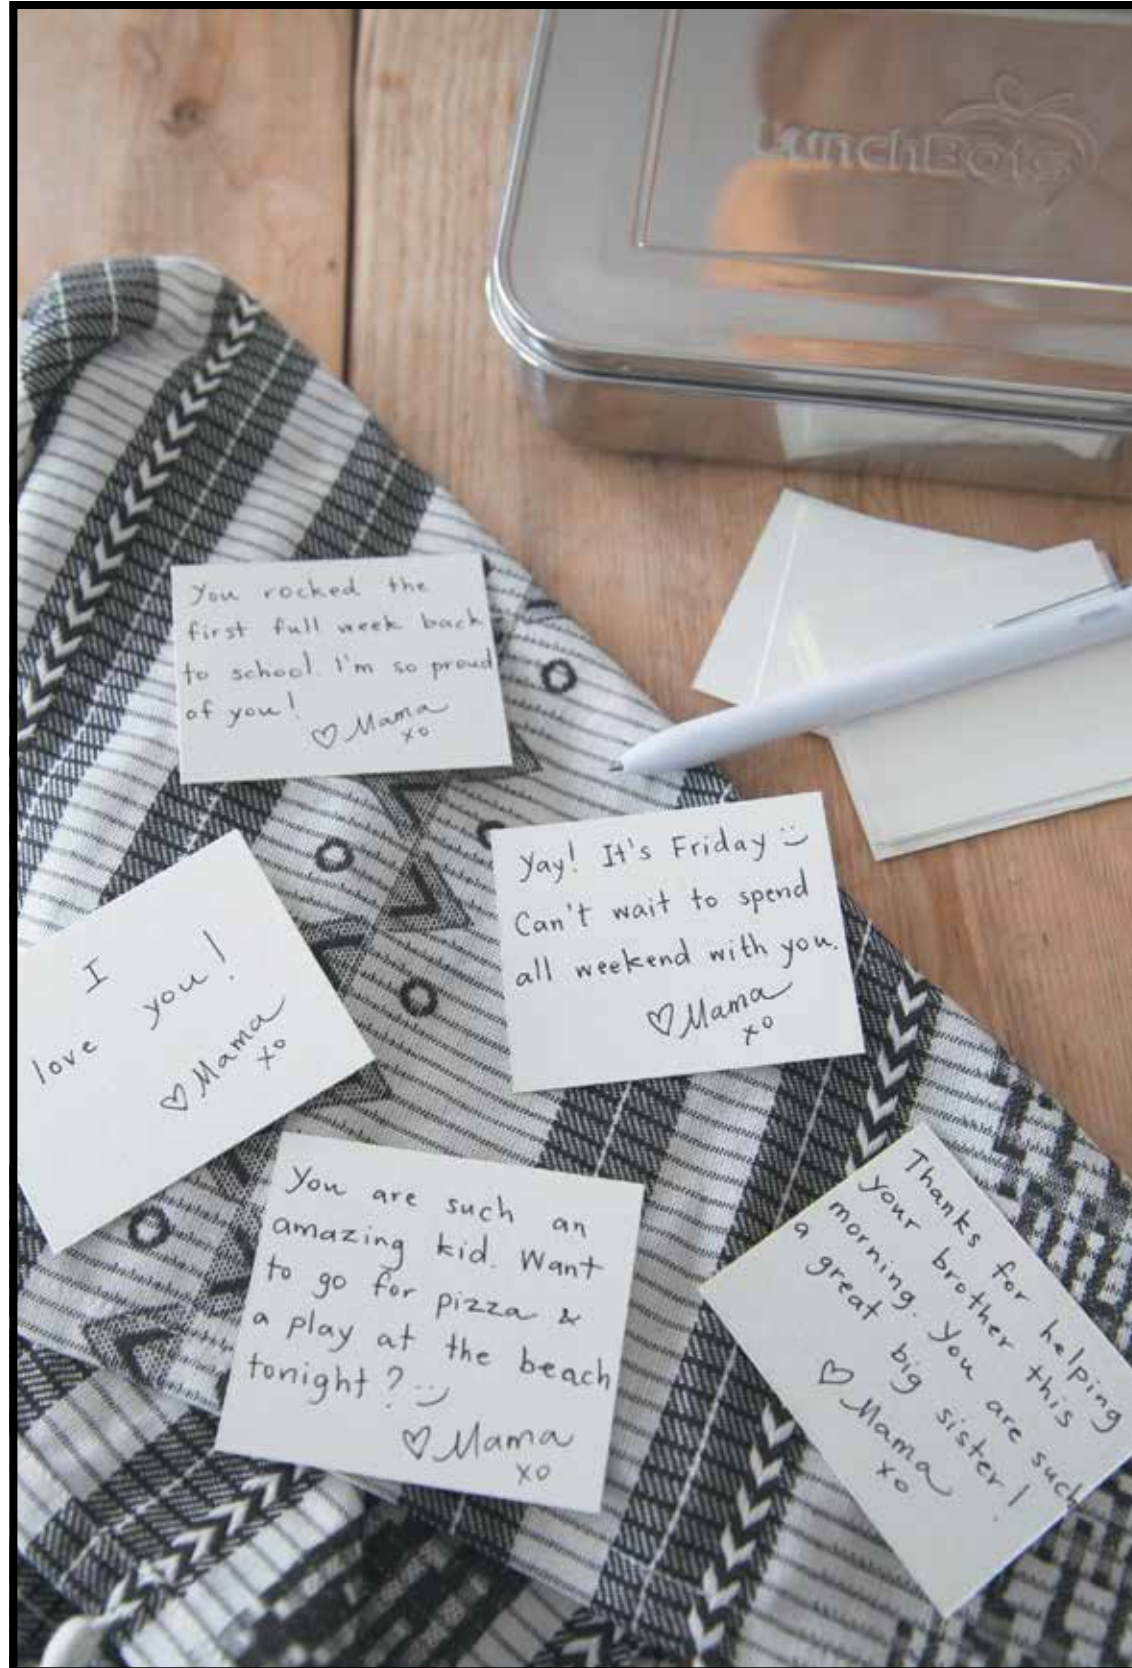 LunchBots
You rocked the
first full week back
to school. I'm so proud
of you!
♡ Mama
xo
Yay! It's Friday :)
Can't wait to spend
all weekend with you.
♡ Mama
xo
I
love you!
♡ Mama
xo
You are such an
amazing kid. Want
to go for pizza &
a play at the beach
tonight? :)
♡ Mama
xo
Thanks for helping
your brother this
morning. You are such
a great big sister!
♡ Mama
xo